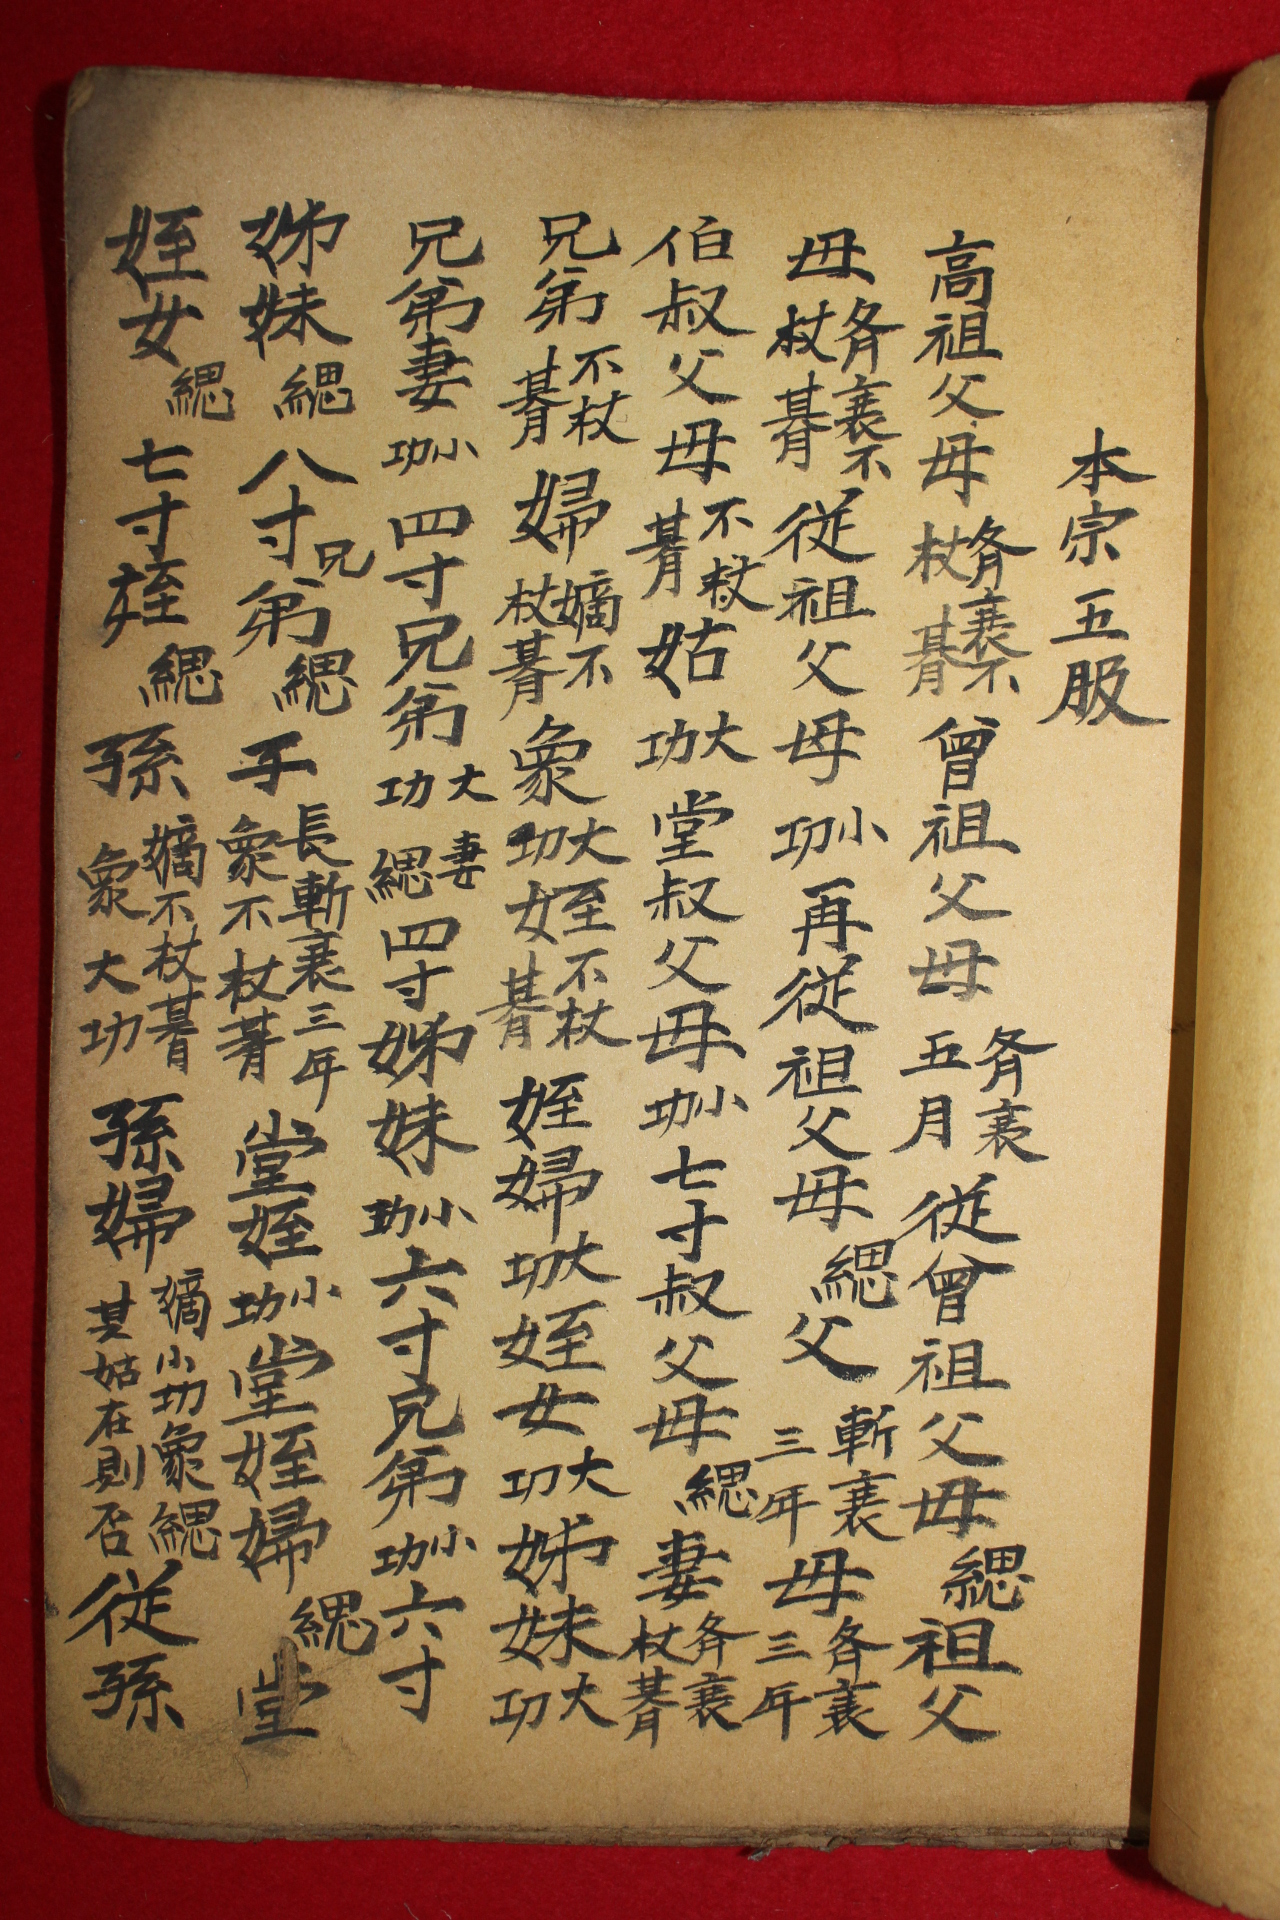 本宗五服
高祖父母 齐衰不杖朞 曾祖父母 齐衰五月 従曾祖父母 緦 祖父
母 齐衰不杖朞 従祖父母 小功 再従祖父母 緦 父 斬衰三年 母 齐衰三年
伯叔父母 不杖朞 姑 大功 堂叔父母 小功 七寸叔父母 緦 妻 齐衰杖朞
兄弟 不杖朞 婦 嫡不杖朞 衆 大功 姪 不杖朞 姪婦 大功 姪女 大功 姊妹 大功
兄弟妻 小功 四寸兄弟 大功 妻緦 四寸姊妹 小功 六寸兄弟 小功 六寸
姊妹 緦 八寸兄弟 緦 子 長斬衰三年 衆不杖朞 堂姪 小功 堂姪婦 緦 堂
姪女 緦 七寸姪 緦 孫 嫡不杖朞 衆大功 孫婦 嫡小功衆緦 其姑在則否 従孫